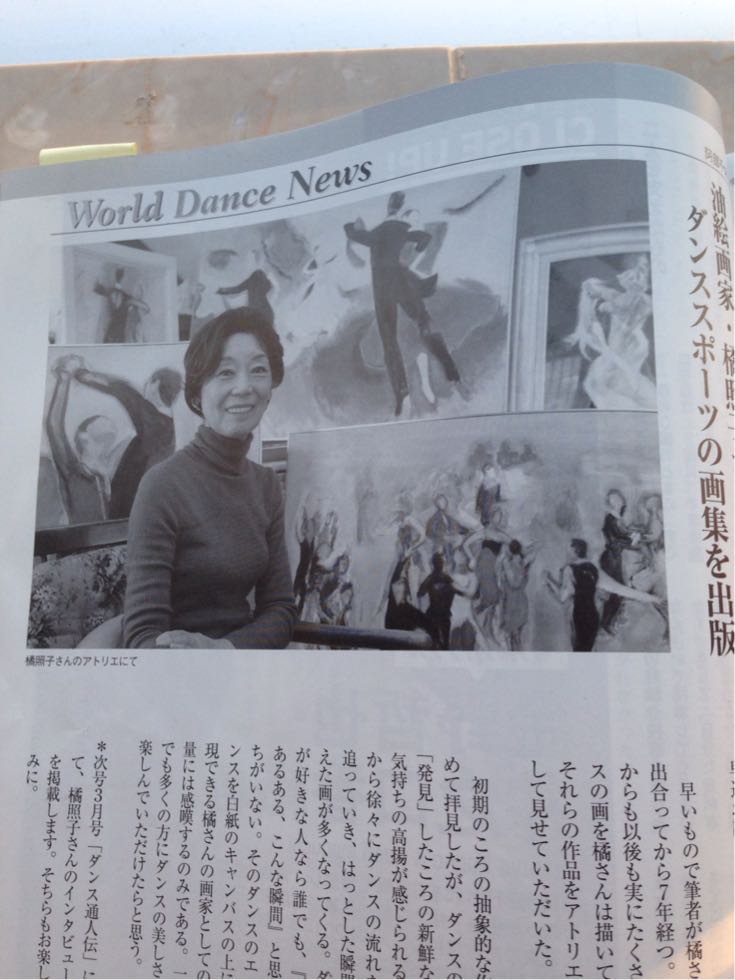 CLOSE UP!
World Dance News
油絵画家・橘照
ダンススポーツの画集を出版
橘照子さんのアトリエにて
早いもので筆者が橘さ
出合ってから7年経つ。
からも以後も実にたくさ
スの画を橘さんは描いて
それらの作品をアトリエ
して見せていただいた。
初期のころの抽象的な
めて拝見したが、ダンスの
「発見」したころの新鮮な
気持ちの高揚が感じられる
から徐々にダンスの流れ
追っていき、はっとした瞬
えた画が多くなってくる。ダ
が好きな人なら誰でも、『
あるある、こんな瞬間』と思
ちがいない。そのダンスのエ
ンスを白紙のキャンバスの上に
現できる橘さんの画家としての
量には感嘆するのみである。一
でも多くの方にダンスの美しさ
楽しんでいただけたらと思う。
＊次号3月号「ダンス通人伝」に
て、橘照子さんのインタビュー
を掲載します。そちらもお楽し
みに。